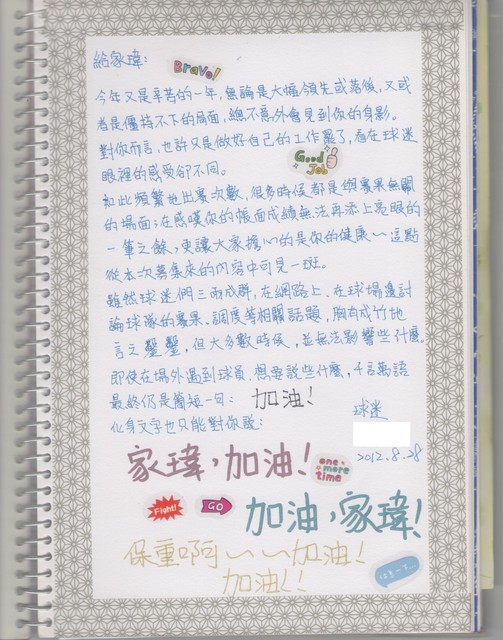 給家瑋：
Bravo!
今年又是辛苦的一年，無論是大幅領先或落後，又或
者是僵持不下的局面，總不意外會見到你的身影。
對你而言，也許只是做好自己的工作罷了，看在球迷
眼裡的感受卻不同。
Good Job
如此頻繁地出賽次數，很多時候都是與賽果無關
的場面；在感嘆你的帳面成績無法再添上亮眼的
一筆之餘，更讓大家擔心的是你的健康～這點
從本次募集來的內容中可見一斑。
雖然球迷們三兩成群，在網路上、在球場邊討
論球隊的賽果、調度等相關話題，胸有成竹地
言之鑿鑿，但大多數時候，並無法影響些什麼。
即使在場外遇到球員，想要說些什麼，千言萬語
最終仍是簡短一句：加油！
化身文字也只能對你說：
球迷
2012.8.28
家瑋，加油！
one more time
Fight!
GO
加油，家瑋！
保重啊～～～加油！
加油！